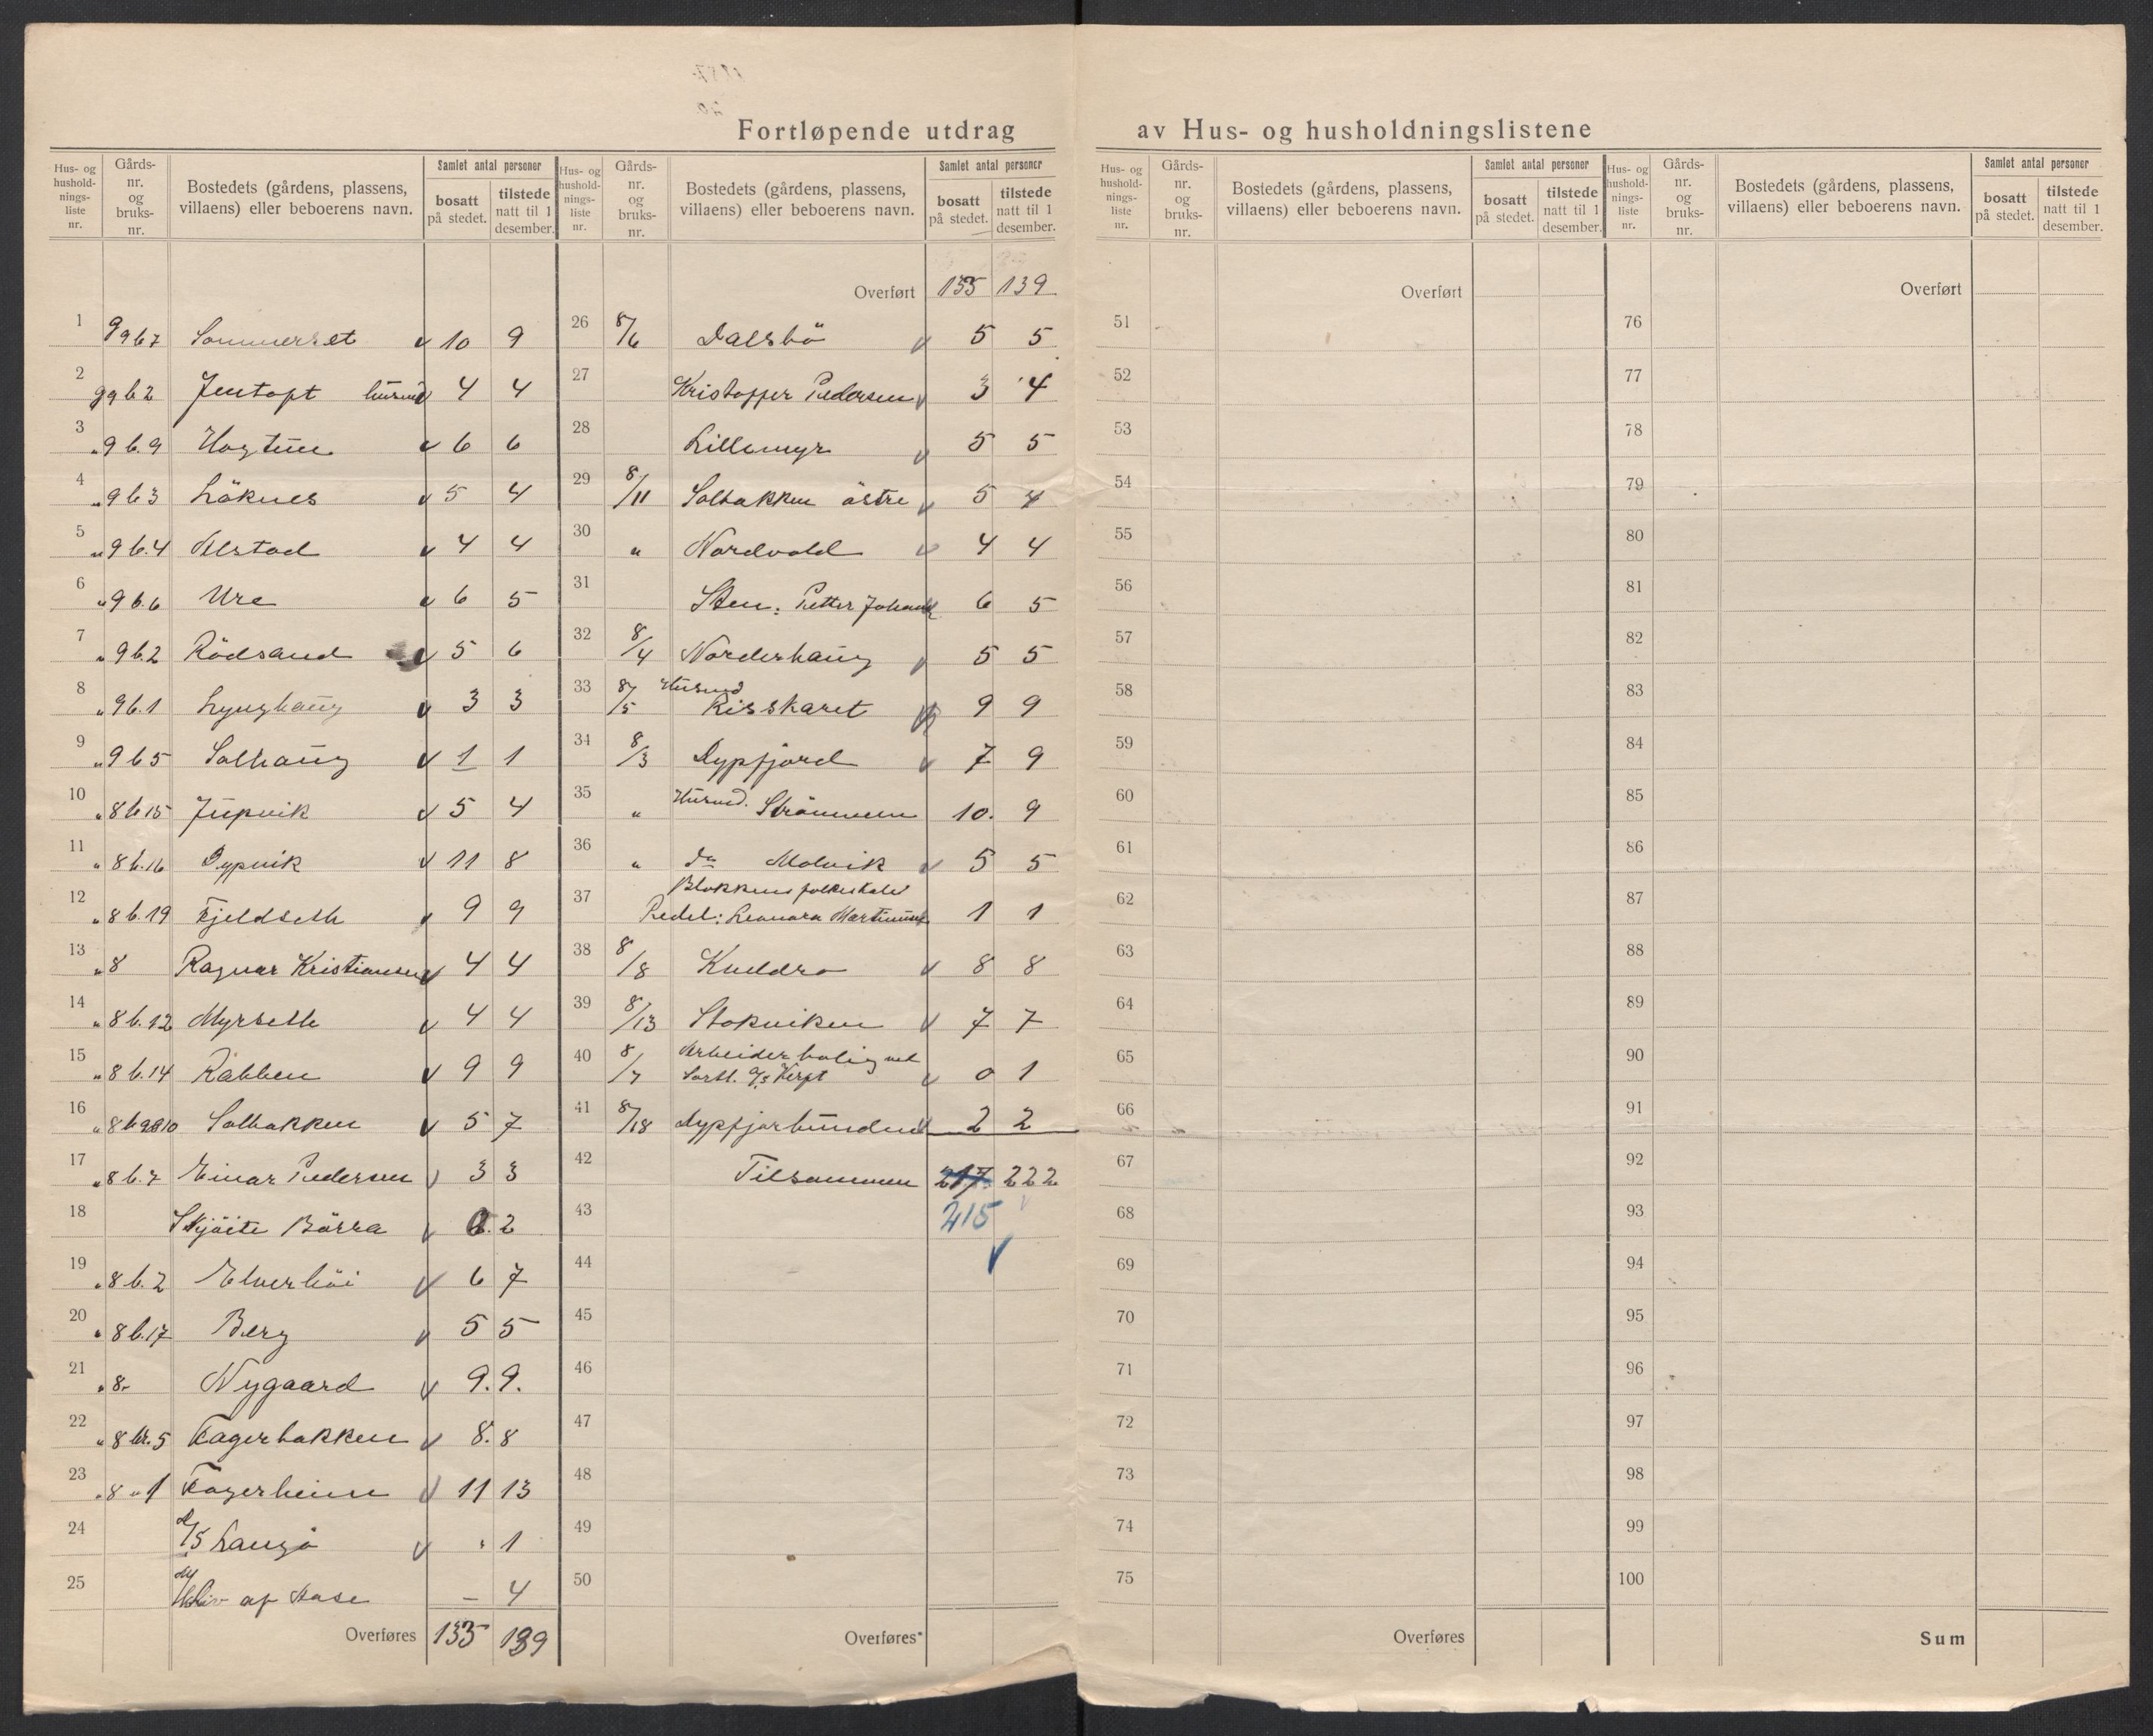 Fortløpende utdrag av Hus- og husholdningslistene
Hus- og hushold-nings-liste nr. Gårds-nr. og bruks-nr. Bostedets (gårdens, plassens, villaens) eller beboerens navn. Samlet antal personer bosatt på stedet. tilstede natt til 1 desember.
1 g 9 b 7 Sommerset v 10 9
2 g 9 b 2 Jentoft husmd 4 4
3 " 9 b. 9 Hogtun v 6 6
4 " 9 b 3 Løknes v 5 4
5 " 9 b. 4 Alstad v 4 4
6 " 9 b. 6 Ure v 6 5
7 " 9 b. 2 Rödsand v 5 6
8 " 9 b. 1 Lynghaug v 3 3
9 " 9 b 5 Solhaug v 1 1
10 " 8 b 15 Jupvik v 5 4
11 " 8 b. 16 Dypvik v 11 8
12 " 8 b. 19 Fjeldseth v 9 9
13 " 8 Ragnar Kristiansen v 4 4
14 " 8 b. 12 Myrseth v 4 4
15 " 8 b. 14 Rabben v 9 9
16 " 8 b 9&10 Solbakken v 5 7
17 " 8 b. 7 Einar Pedersen v 3 3
18 Skjöite Börra v 2. 2
19 " 8 b. 2 Elverhöi v 6 7
20 " 8 b. 17 Berg v 5 5
21 " 8. Nygaard v 9. 9.
22 " 8 br. 5 Fagerbakken v 8. 8
23 " 8 " 1 Fagerheim v 11 13
24 D/S Langö v " 1
25 af Aase – 4
Overføres 135 139
Hus- og hushold-nings-liste nr. Gårds-nr. og bruks-nr. Bostedets (gårdens, plassens, villaens) eller beboerens navn. Samlet antal personer bosatt på stedet. tilstede natt til 1 desember.
Overført 135 139
26 8/6 Dalsbö v 5 5
27 Kristoffer Pedersen v 3 4
28 Lillemyr v 5 5
29 8/11 Solbakken östre v 5 4
30 " Nordvold v 4 4
31 Sten: Petter Johans 6 5
32 8/4 Norderhaug v 5 5
33 8/5 Husmd Risskaret v 9 9
34 8/3 Dypfjord v 7 9
35 " Husmd. Strömmen 10. 9
36 " do Molvik v 5 5
37 Blokkens folkeskole
Pedel: Leonora Martinus 1 1
38 8/8 Kuddro v 8 8
39 8/13 Stokviken v 7 7
40 8/7 Arbeiderbolig ved
Sortl. A/S Verft v 0 1
41 8/18 Dypfjorbunden v 2 2
42 Tilsammen 217 222
43 215 v
44 v
45
46
47
48
49
50
Overføres
Hus- og hushold-nings-liste nr. Gårds-nr. og bruks-nr. Bostedets (gårdens, plassens, villaens) eller beboerens navn. Samlet antal personer bosatt på stedet. tilstede natt til 1 desember.
Overført
51
52
53
54
55
56
57
58
59
60
61
62
63
64
65
66
67
68
69
70
71
72
73
74
75
Overføres
Hus- og hushold-nings-liste nr. Gårds-nr. og bruks-nr. Bostedets (gårdens, plassens, villaens) eller beboerens navn. Samlet antal personer bosatt på stedet. tilstede natt til 1 desember.
Overført
76
77
78
79
80
81
82
83
84
85
86
87
88
89
90
91
92
93
94
95
96
97
98
99
100
Sum